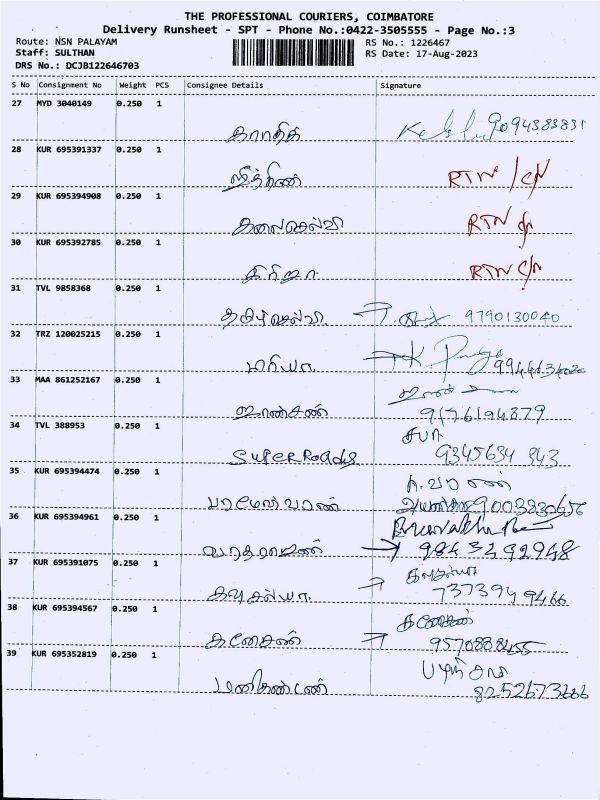 THE PROFESSIONAL COURIERS, COIMBATORE
Delivery Runsheet - SPT - Phone No.:0422-3505555 - Page No.:3
Route: NSN PALAYAM RS No.: 1226467
Staff: SULTHAN RS Date: 17-Aug-2023
DRS No.: DCJB122646703
S No Consignment No Weight PCS Consignee Details Signature
27 MYD 3040149 0.250 1
கார்த்திக் 9094383831
28 KUR 695391337 0.250 1
ஜித்தின் RTN / CN
29 KUR 695394908 0.250 1
கலைசெல்வி RTN
30 KUR 695392785 0.250 1
கிரிஜா RTN C/N
31 TVL 9858368 0.250 1
தமிழ்செல்வி 9790130040
32 TRZ 120025215 0.250 1
மரியா
33 MAA 861252167 0.250 1
ஜான்சன் 9176194379
34 TVL 388953 0.250 1 சபா
SUPER Roads 9345634 343
35 KUR 695394474 0.250 1
பரமேஸ்வரன் 9003830656
36 KUR 695394961 0.250 1
வரதராஜன் 9843292948
37 KUR 691391075 0.250 1 கவுசல்யா
கவுசல்யா 737394 9466
38 KUR 695394567 0.250 1 கணேசன்
கணேசன் 9570888455
39 KUR 695352819 0.250 1
மணிகண்டன் 8252673666